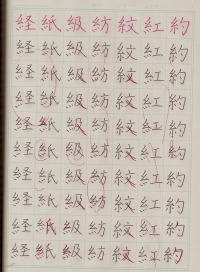 経紙級紡紋紅約
経紙級紡紋紅約
経紙級紡紋紅約
経紙級紡紋紅約
経紙級紡紋紅約
経紙級紡紋紅約
経紙級紡紋紅約
経紙級紡紋紅約
経紙級紡紋紅約
経紙級紡紋紅約